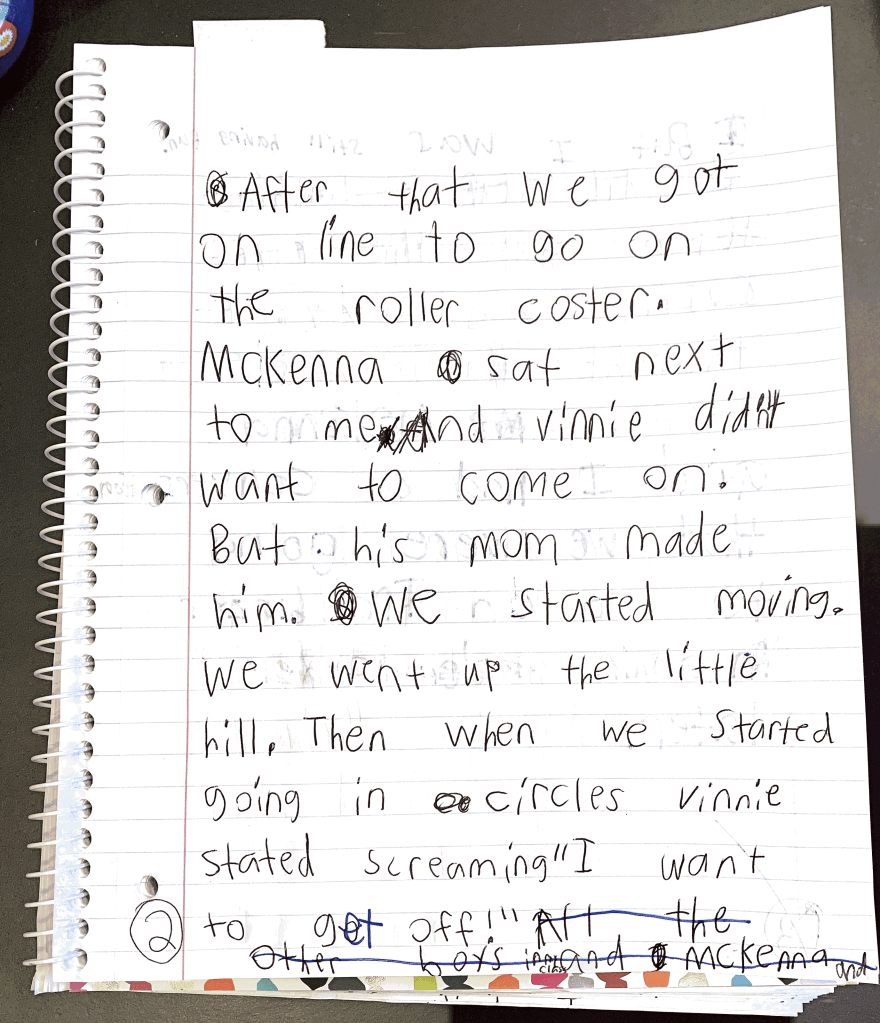 After that we got
on line to go on
the roller coster.
McKenna sat next
to me And vinnie didn't
want to come on.
But his mom made
him. We started moving.
We went up the little
hill. Then when we started
going in circles vinnie
stated screaming "I want
2 to get off!" Aft the
other boys in and McKenna and